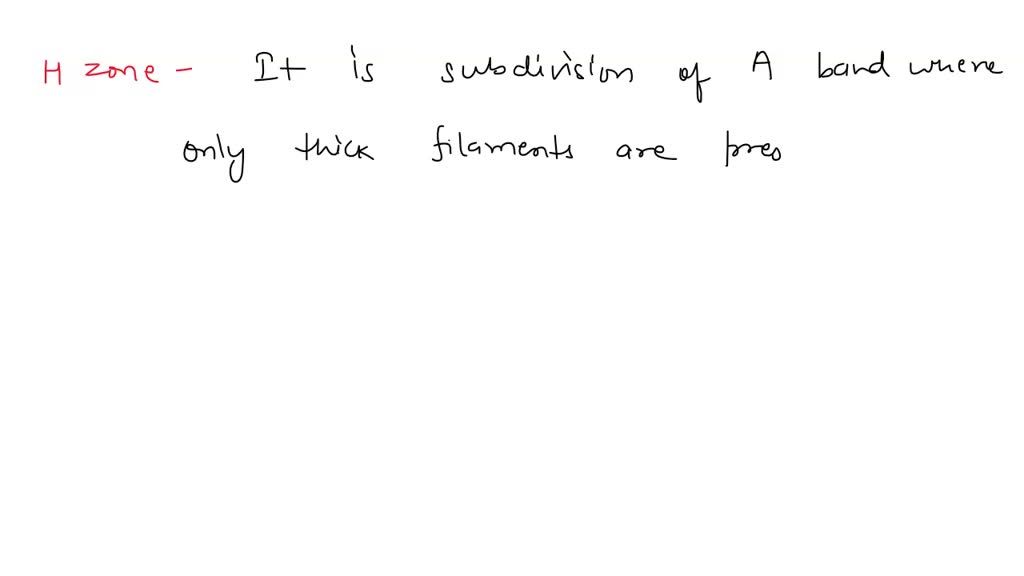 H zone - It is subdivision of A band where
only thick filaments are pres